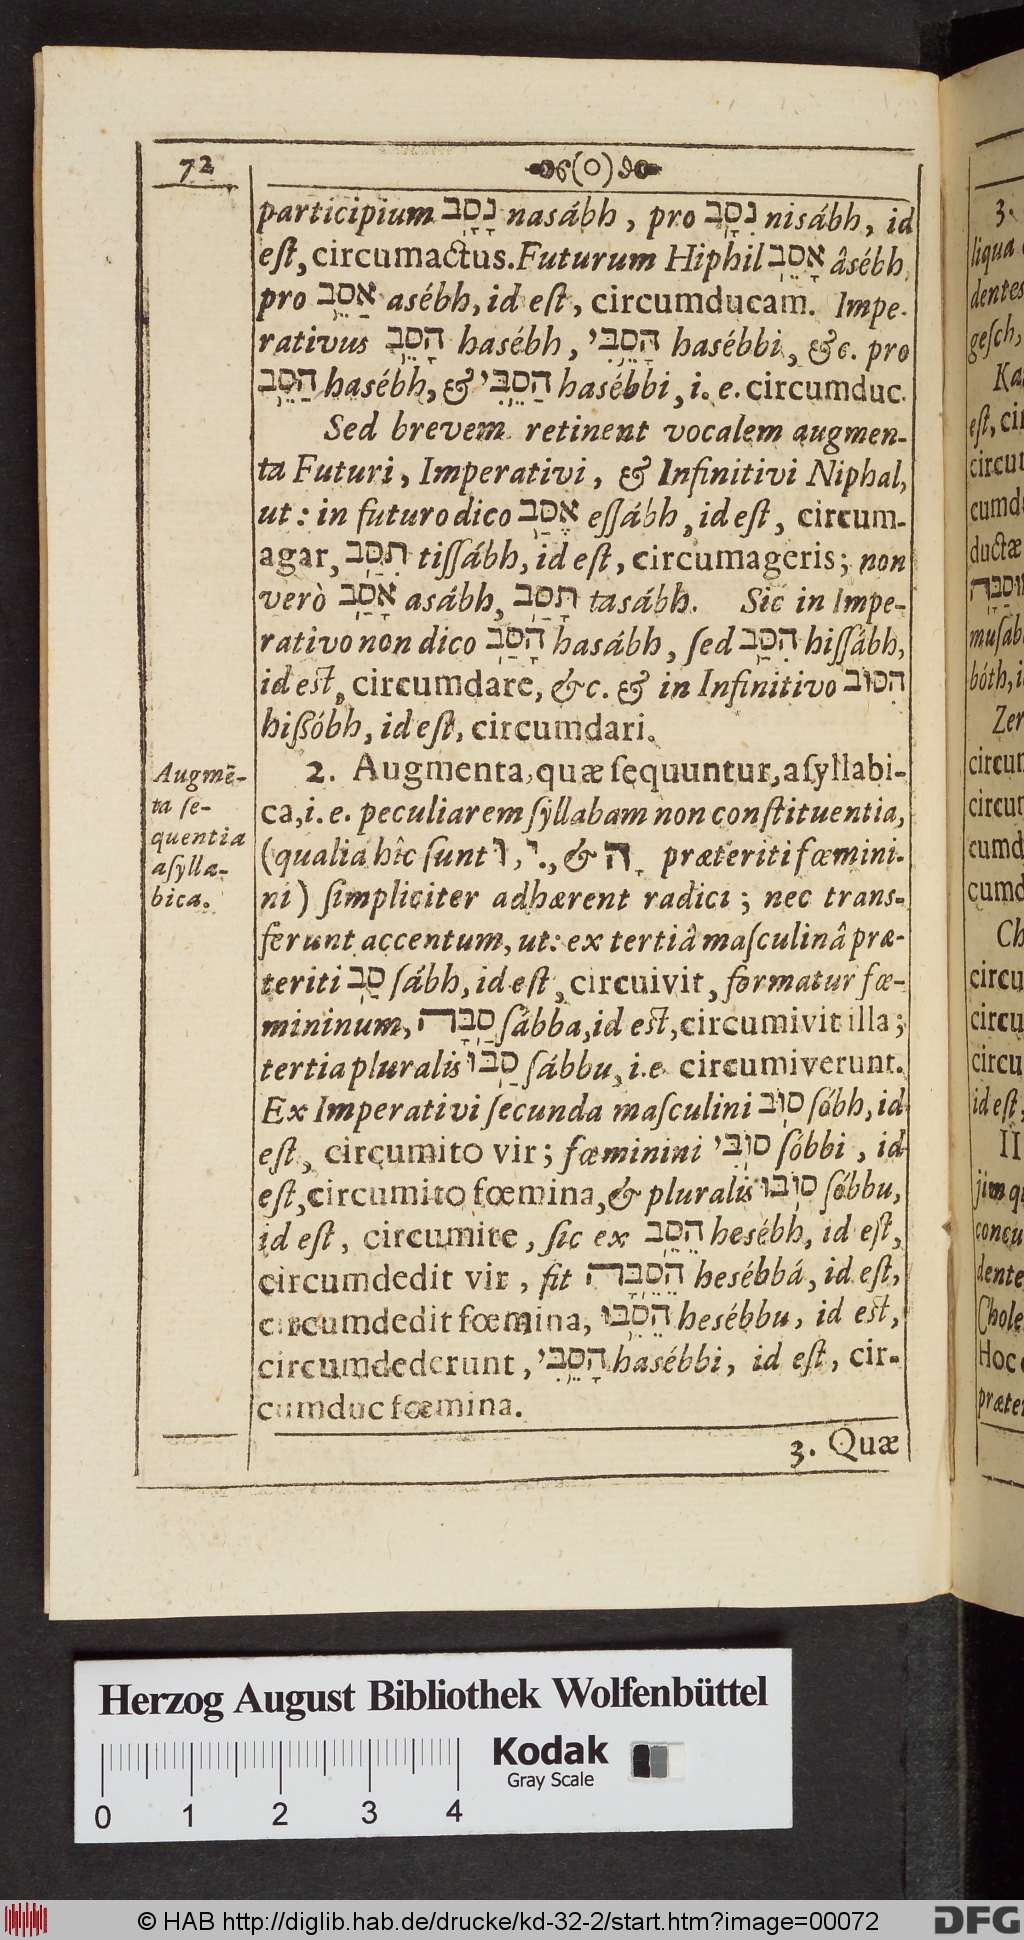 72
participium נָסָב nasábh, pro נִסָּב nisábh, id
eſt, circumactus. Futurum Hiphil אָסֵב âsébh
pro אַסֵב asébh, id eſt, circumducam. Impe-
rativus הָסֵב hasébh, הָסֵבִּי hasébbi, &c. pro
הַסֵב hasébh, & הַסֵבִּי hasébbi, i. e. circumduc.
Sed brevem retinent vocalem augmen-
ta Futuri, Imperativi, & Infinitivi Niphal,
ut: in futuro dico אֶסַּב eſſábh, id eſt, circum-
agar, תִסַּב tiſſábh, id eſt, circumageris; non
verò אָסַב asábh, תָסַב tasábh. Sic in Impe-
rativo non dico הָסַב hasábh, ſed הִסַּב hiſſábh,
id est, circumdare, &c. & in Infinitivo הִסּוֹב
hiſsóbh, id eſt, circumdari.
Augmē-
ta ſe-
quentia
aſylla-
bica.
2. Augmenta, quæ ſequuntur, aſyllabi-
ca, i. e. peculiarem ſyllabam non conſtituentia,
(qualia hîc ſunt וּ, ִי, & ָה præteriti fœmini-
ni) ſimpliciter adhærent radici; nec trans-
ferunt accentum, ut: ex tertiâ maſculinâ præ-
teriti סַב ſábh, id eſt, circuivit, formatur fœ-
mininum, סַבָּה ſábba, id est, circumivit illa;
tertia pluralis סַבּוּ ſábbu, i. e circumiverunt.
Ex Imperativi ſecunda maſculini סוֹב ſóbh, id
eſt, circumito vir; fœminini סוֹבִּי ſóbbi, id
eſt, circumito fœmina, & pluralis סוֹבּוּ ſóbbu,
id eſt, circumite, ſic ex הֵסֵב hesébh, id eſt,
circumdedit vir, fit הֵסֵבָּה hesébbá, id eſt,
circumdedit fœmina, הֵסֵבּוּ hesébbu, id est,
circumdederunt, הָסֵבִּי hasébbi, id eſt, cir-
cumduc fœmina.
3. Quæ
3.
liqua
dentes
geſch,
eſt, cir
circu
cumd
ductæ
muſab
bóth, i
circum
circu
cumd
cumd
circu
circu
circu
id eſt,
II
jim q
concu
dente
Chole
Hoc
præter
Herzog August Bibliothek Wolfenbüttel
Kodak
Gray Scale
0 1 2 3 4
© HAB http://diglib.hab.de/drucke/kd-32-2/start.htm?image=00072
DFG